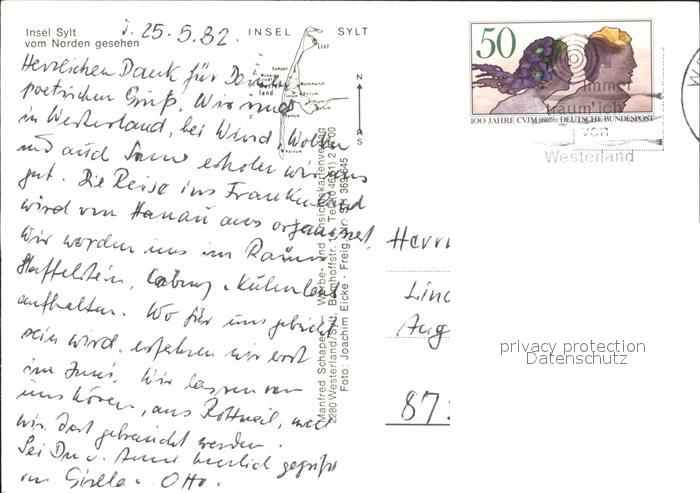 Insel Sylt
vom Norden gesehen
d. 25.5.82.
INSEL SYLT
List
Kampen
Westerland
N
S
Herzlichen Dank für Deinen
poetischen Gruß. Wir sind
in Westerland, bei Wind, Wolken
und auch Sonne erholen wir uns
gut. Die Reise ins Frankenland
wird von Hanau aus organisiert,
wir werden uns im Raum
Staffelstein, Coburg, Kulmbach
aufhalten. Wo für uns gebucht
sein wird, erfahren wir erst
im Juni. Wir lassen von
uns hören, aus Rottweil, weil
wir dort gebraucht werden.
Sei Du u. Anni herzlich gegrüßt
von Gisela u. Otto.
Manfred Schaper, Werbe- und Ansichtskartenverlag
2280 Westerland/Sylt, Bahnhofstr.
Foto: Joachim Eicke · Freig. Nr. SH 369/645
50
100 JAHRE CVJM DEUTSCHE BUNDESPOST
Immer
träum' ich
von
Westerland
Herrn
Lin
Aug
87
privacy protection
Datenschutz